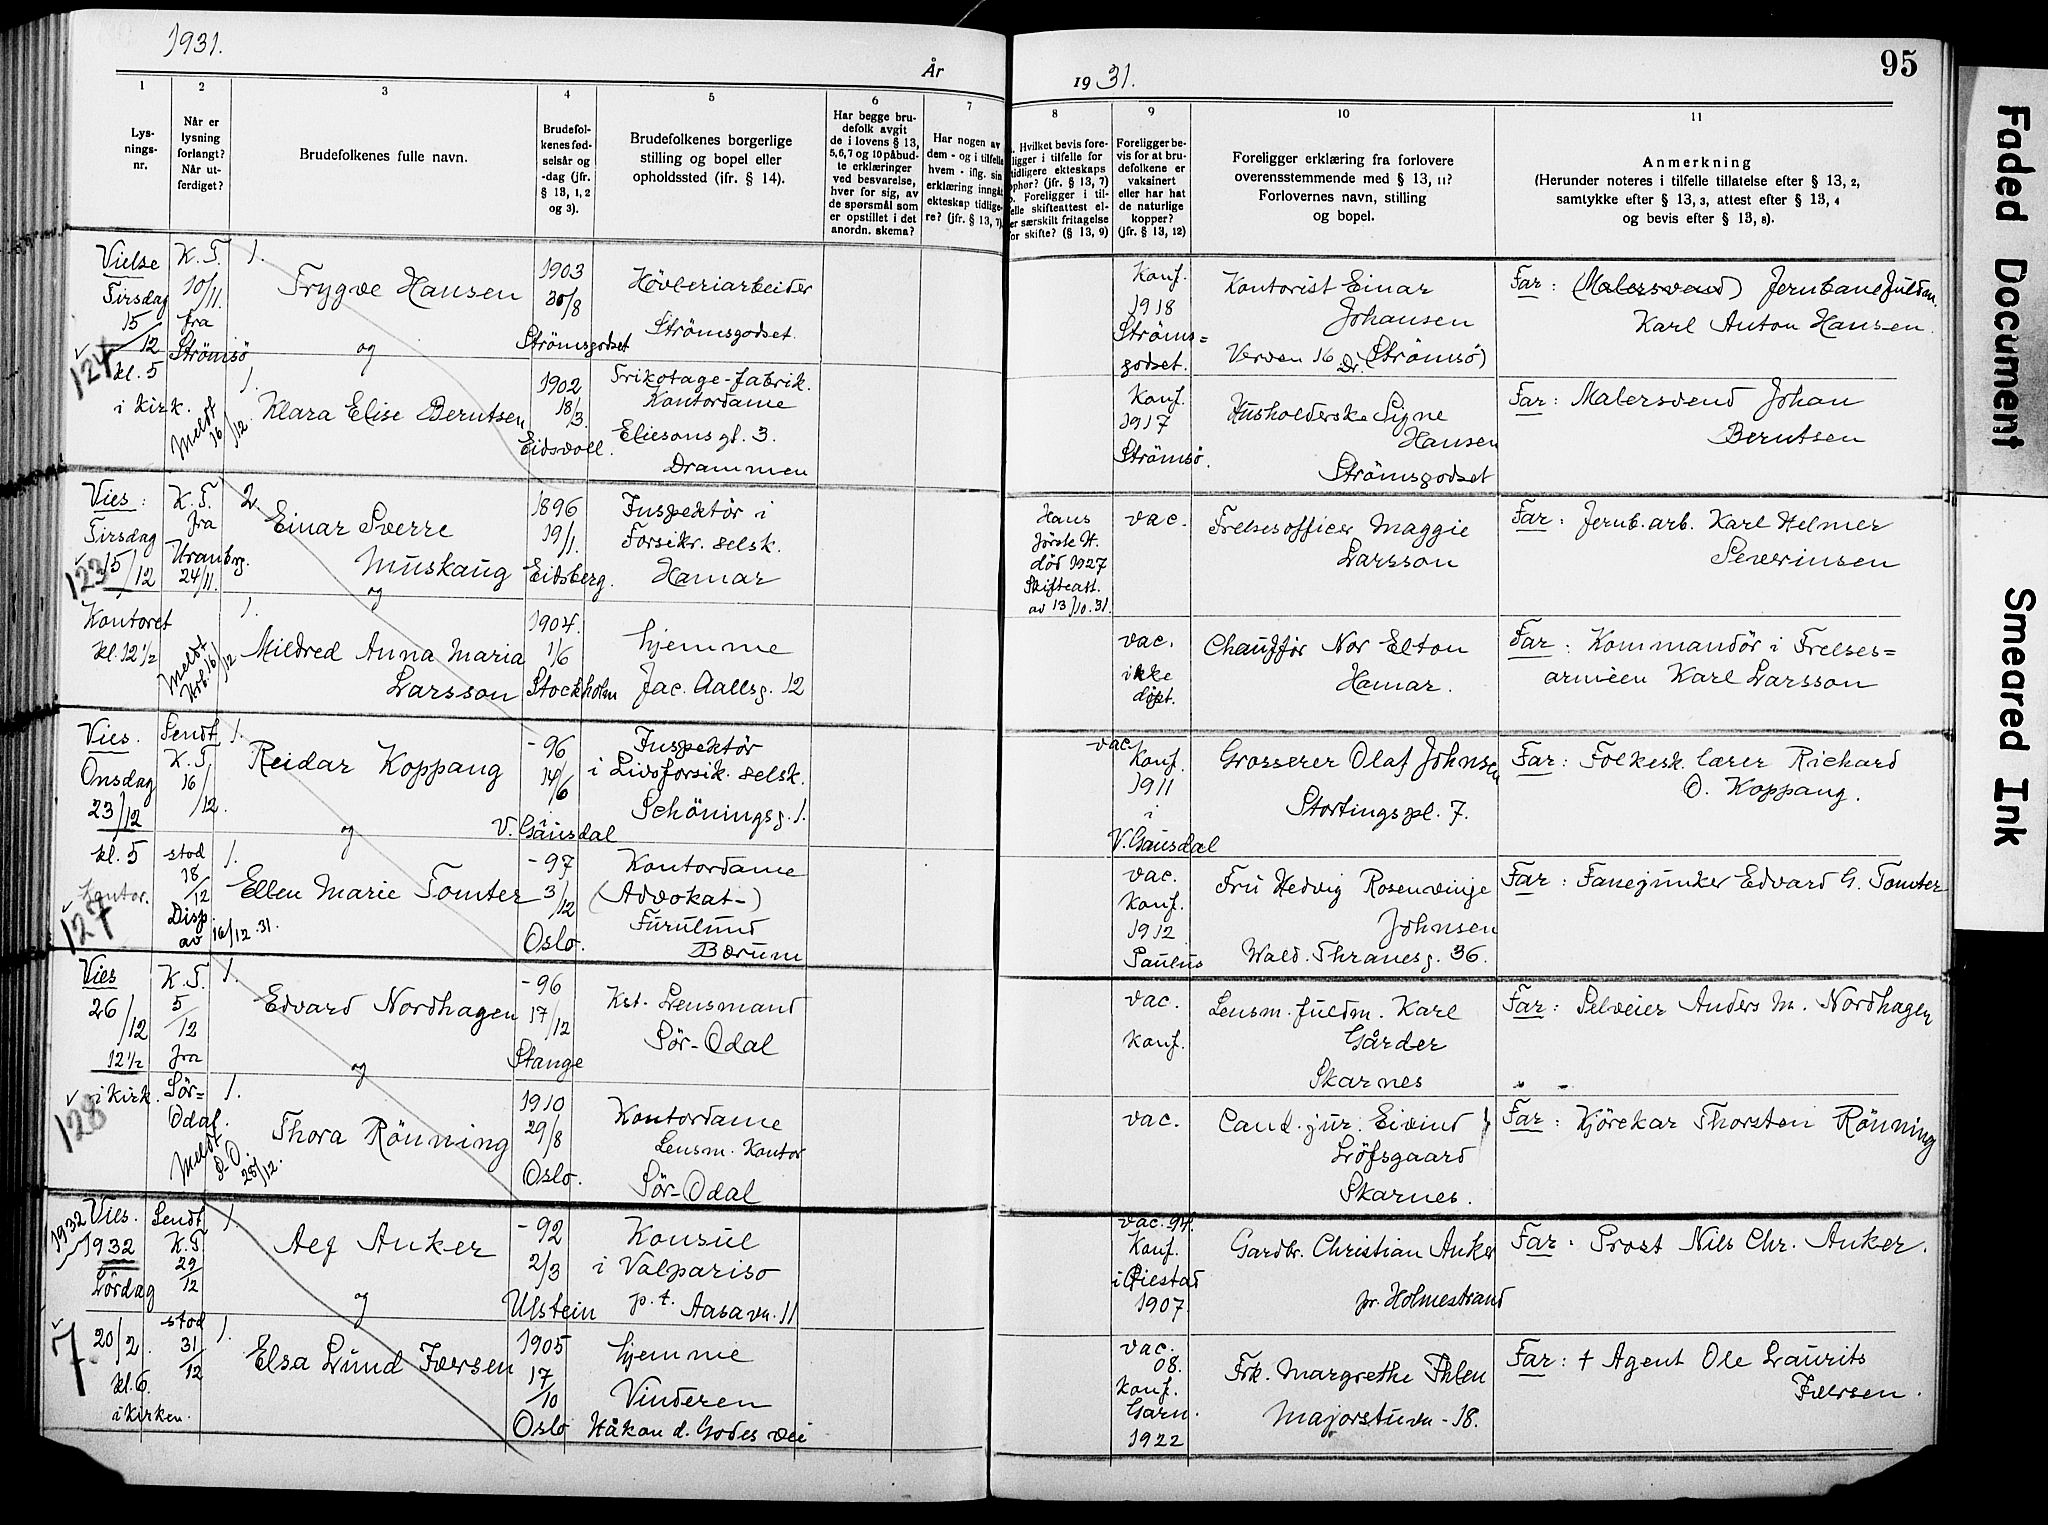 1931.
År
1931.
95
1
Lys-
nings-
nr.
2
Når er
lysning
forlangt?
Når ut-
ferdiget?
3
Brudefolkenes fulle navn.
4
Brudefol-
kenes fød-
selsår og
-dag (jfr.
§ 13, 1, 2
og 3).
5
Brudefolkenes borgerlige
stilling og bopel eller
opholdssted (jfr. § 14).
6
Har begge bru-
defolk avgit
de i lovens § 13,
5, 6, 7 og 10 påbud-
te erklæringer
ved besvarelse,
hver for sig, av
de spørsmål som
er opstillet i det
anordn. skema?
7
Har nogen av
dem - og i tilfelle
hvem - iflg. sin
erklæring inngåt
ekteskap tidlige-
re? (jfr. § 13, 7)
8
Hvilket bevis fore-
ligger i tilfelle for
tidligere ekteskaps
ophør? (jfr. § 13, 7)
Foreligger i til-
felle skifteattest el-
ler særskilt fritagelse
for skifte? (§ 13, 9)
9
Foreligger be-
vis for at bru-
defolkene er
vaksinert
eller har hat
de naturlige
kopper?
(jfr. § 13, 12)
10
Foreligger erklæring fra forlovere
overensstemmende med § 13, 11?
Forlovernes navn, stilling
og bopel.
11
Anmerkning
(Herunder noteres i tilfelle tillatelse efter § 13, 2,
samtykke efter § 13, 3, attest efter § 13, 4
og bevis efter § 13, 8).
Vielse
Tirsdag
15/12
kl. 5
i Kirk.
124
K. T.
10/11.
fra
Strömsö
Meldt
16/12.
1.
Trygve Hansen
og
1903
30/8
Strömsgodset
Hövleriarbeider
Strömsgodset.
Konf.
1918
Ströms=
godset.
Kontorist Einar
Johansen
Verven 16 Dr. (Strömsö)
Far: (Malersvend) Jernbanefuldm.
Karl Anton Hansen.
1.
Klara Elise Berntsen
1902
18/3
Eidsvoll.
Trikotage-fabrik.
Kontordame
Eliesons gt. 3.
Drammen
Konf.
1917
Strömsö.
Husholderske Signe
Hansen
Strömsgodset
Far: Malersvend Johan
Berntsen
Vies:
Tirsdag
15/12
Kontoret
kl. 12 1/2
123
K. T.
fra
Uranbrg.
24/11.
Meldt
Urb. 16/12
2
Einar Sverre
Muskaug
og
1896
19/1.
Eidsberg.
Inspektör i
Forsikr. selsk.
Hamar
Hans
förste H.
död 1927
Skifteatt.
av 13/10.31.
vac.
Frelsesofficer Maggie
Larsson
Far: Jernb.arb. Karl Helmer
Severinsen
1.
Mildred Anna Maria
Larsson
1904.
1/6
Stockholm
hjemme
Jac. Aallsg. 12
vac.
ikke
döpt.
Chaufför Nor Elton
Hamar.
Far: Kommandör i Frelses=
armeen Karl Larsson
Vies.
Onsdag
23/12
kl. 5
Kontor.
127
Sendt
K. T.
16/12.
stod
18/12
Disp.
av 16/12.31.
1.
Reidar Koppang
og
-96
14/6
V. Gausdal
Inspektör
i Livsforsik. selsk.
Schöningsg. 1.
vac
Konf.
1911
i
V. Gausdal
Grosserer Olaf Johnsen
Stortingspl. 7.
Far: Folkesk. lærer Richard
O. Koppang.
1.
Ellen Marie Tomter
-97
3/12
Oslo.
Kontordame
(Advokat-)
Furulund
Bærum
vac.
Konf.
1912
Paulus
Fru Hedvig Rosenvinge
Johnsen
Wald. Thranesg. 36.
Far: Fanejunker Edvard G. Tomter
Vies
26/12
12 1/2
i Kirk.
128
K. T.
5/12
fra
Sör-
Odal.
Meldt
S. O.
28/12.
1.
Edvard Nordhagen
og
-96
17/12
Stange
Kst. Lensmand
Sör-Odal
vac.
Konf.
Lensm. fuldm. Karl
Gårder
Skarnes
Far: Selveier Anders M. Nordhagen
1.
Thora Rönning
1910
29/8
Oslo.
Kontordame
Lensm. Kontor
Sör-Odal
vac.
Cand. jur. Eivind
Löfsgaard
Skarnes.
Far: Kjörekar Thorsten Rönning
1932
Vies.
1932
Lördag
20/2.
kl. 6.
i Kirken.
7.
Sendt
K. T
29/12
stod
31/12
1.
Alf Anker
og
-92
2/3
Ulstein
Konsul
i Valpariso
p.t. Aasavn. 11
vac. 94.
Konf.
1907.
Gardbr. Christian Anker
pr. Holmestrand
Far: Prost Nils Chr. Anker.
1.
Elsa Lund Iversen
1905
17/10
Oslo
hjemme
Vinderen
Håkon d. Godes vei
vac.
08.
Konf.
Garn.
1922
Frk. Margrethe Ihlen
Majorstuvn - 18.
Far: † Agent Ole Laurits
Iversen.
Faded Document
Smeared Ink